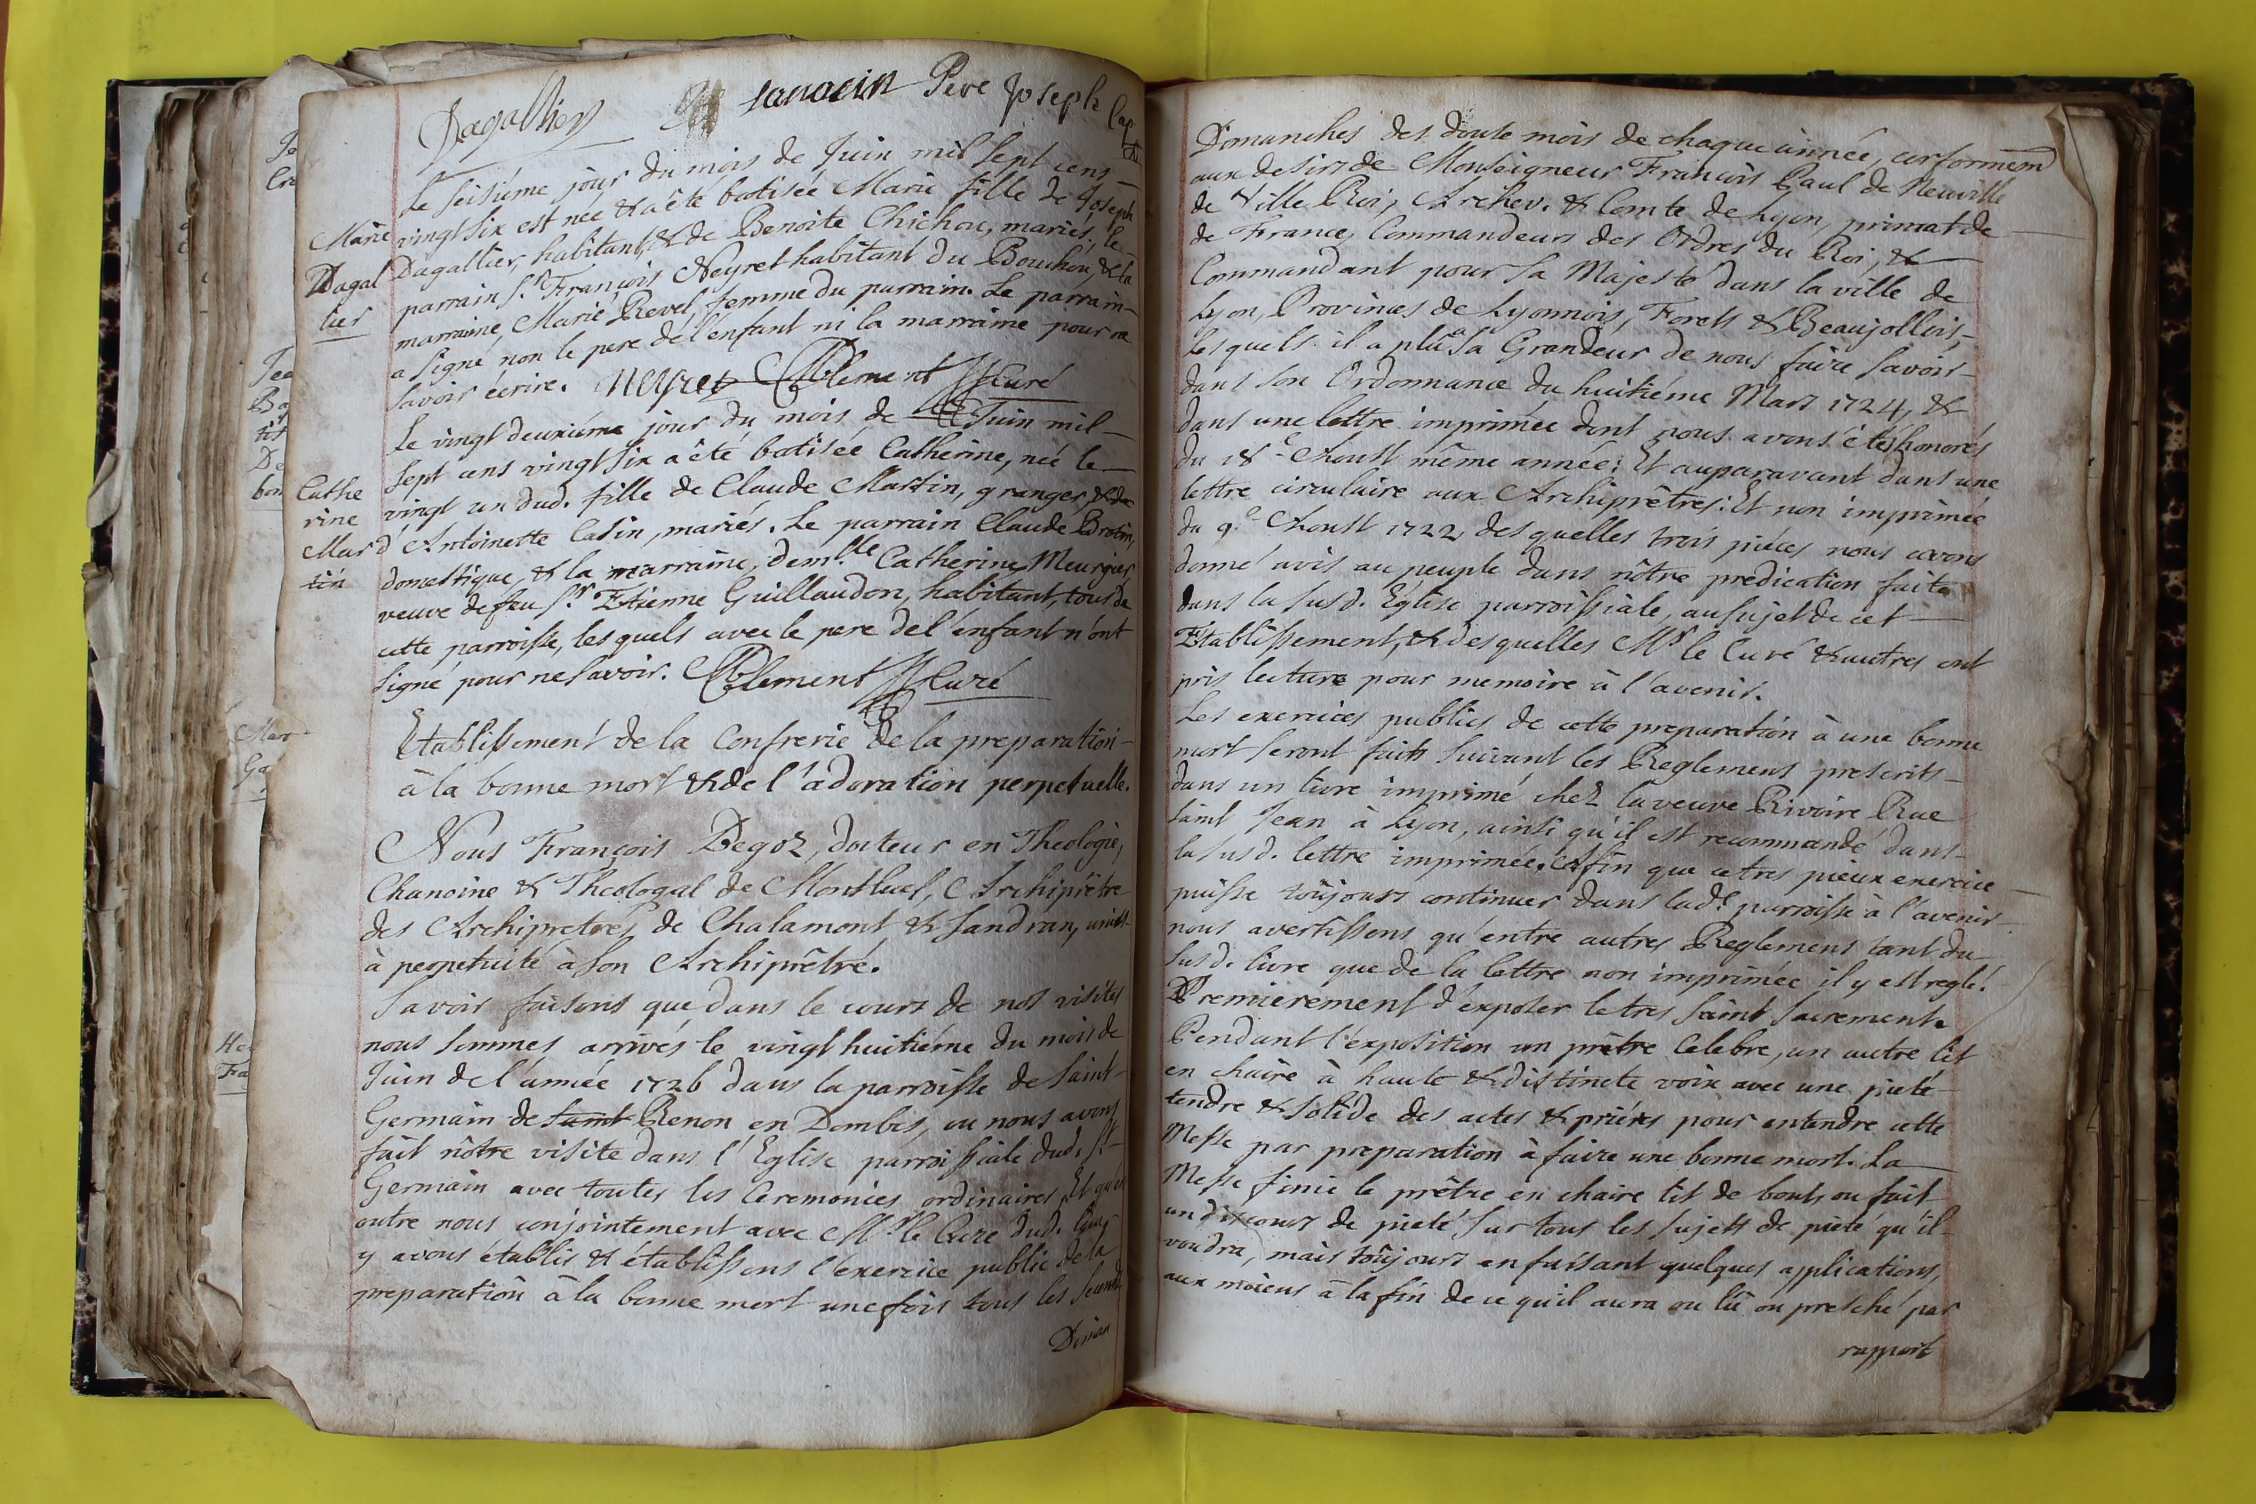 Dagallier Père Joseph
Le seisiéme jour du mois de Juin mil sept cens
vingt six est née & a été batisée Marie fille de Joseph
Dagallier, habitant, & de Benoite Chichou, mariés, le
parrain Sr. François Neyret habitant du Bouchou, & la
marraine Marie Revel, femme du parrain. Le parrain
a signé non le pere de l'enfant ni la marraine pour ne
savoir écrire. Neyret Clement Curé
Marie
Dagal
lier
Le vingt deuxiéme jour du mois de Juin mil
sept cens vingt six a été batisée Catherine, née le
vingt un dud. fille de Claude Martin, granger, & de
d'Antoinette Catin, mariés. Le parrain Claude Brotin,
domestique, & la marraine, demlle Catherine Meurgier
veuve de feu Sr. Etienne Guillaudon, habitant, tous de
cette parroisse, lesquels avec le pere de l'enfant n'ont
signé pour ne savoir. Clement Curé
Cathe
rine
Mar
tin
Etablissement de la Confrerie de la preparation
à la bonne mort & de l'adoration perpetuelle.
Nous François Degoz, docteur en Theologie,
Chanoine & Theologal de Montluel, Archiprêtre
des Archipretrés de Chalamont & Sandran, unies
à perpetuité à son Archiprêtré.
Savoir faisons que dans le cours de nos visites
nous sommes arrivés le vingt huitiéme du mois de
Juin de l'année 1726 dans la parroisse de Saint
Germain de Saint Renon en Dombes, ou nous avons
fait nôtre visite dans l'Eglise parroissiale dud. St
Germain avec toutes les Ceremonies ordinaires, Et qu'en
outre nous conjointement avec Mr. le Curé dud. lieu
y avons établis & établissons l'exercice public de la
preparation à la bonne mort une fois tous les seconds
Diman
Domanches des douse mois de chaque année, conformem
aux desirs de Monseigneur François Paul de Neuville
de Ville Roi, Archev. & Comte de Lyon, primat de
de France, Commandeurs des Ordres du Roi, &
Commandant pour sa Majesté dans la ville de
Lyon, Provinces de Lyonnois, Forets & Beaujollois,
lesquels il a plû à sa Grandeur de nous faire savoir
dans son Ordonnance du huitiéme Mars 1724, &
dans une lettre imprimée dont nous avons étés honorés
du 18e Aoust même année: Et auparavant dans une
lettre circulaire aux Archiprêtres: Et non imprimée
du 9.e Aoust 1722, des quelles trois piéces nous avons
donné avis au peuple dans nôtre predication faite
dans la susd. Eglise parroissiale, au sujet de cet
Etablissement, & desquelles Mr le Curé & autres ont
pris lecture pour memoire à l'avenir.
Les exercices publics de cette preparation à une bonne
mort seront faits suivant les Reglemens prescrits
dans un livre imprimé chez la veuve Rivoire Rue
saint Jean à Lyon, ainsi qu'il est recommandé dans
la susd. lettre imprimée. Afin que ce tres pieux exercice
puisse toûjours continuer dans lad.e parroisse à l'avenir
nous avertissons qu'entre autres Reglemens tant du
susd. livre que de la lettre non imprimée il y est reglé.
Premierement d'exposer le tres saint Sacrement.
Pendant l'exposition un prêtre Celebre, un autre lit
en chaire à haute & distincte voix avec une pieté
tendre & solide des actes & priéres pour entendre cette
Messe par preparation à faire une bonne mort. La
Messe finie le prêtre en chaire lit de bout, ou fait
un discours de pieté sur tous les sujets de pieté qu'il
voudra, mais toûjours en faisant quelques applications,
aux moiens à la fin de ce qu'il aura ou lû ou presché par
rapport